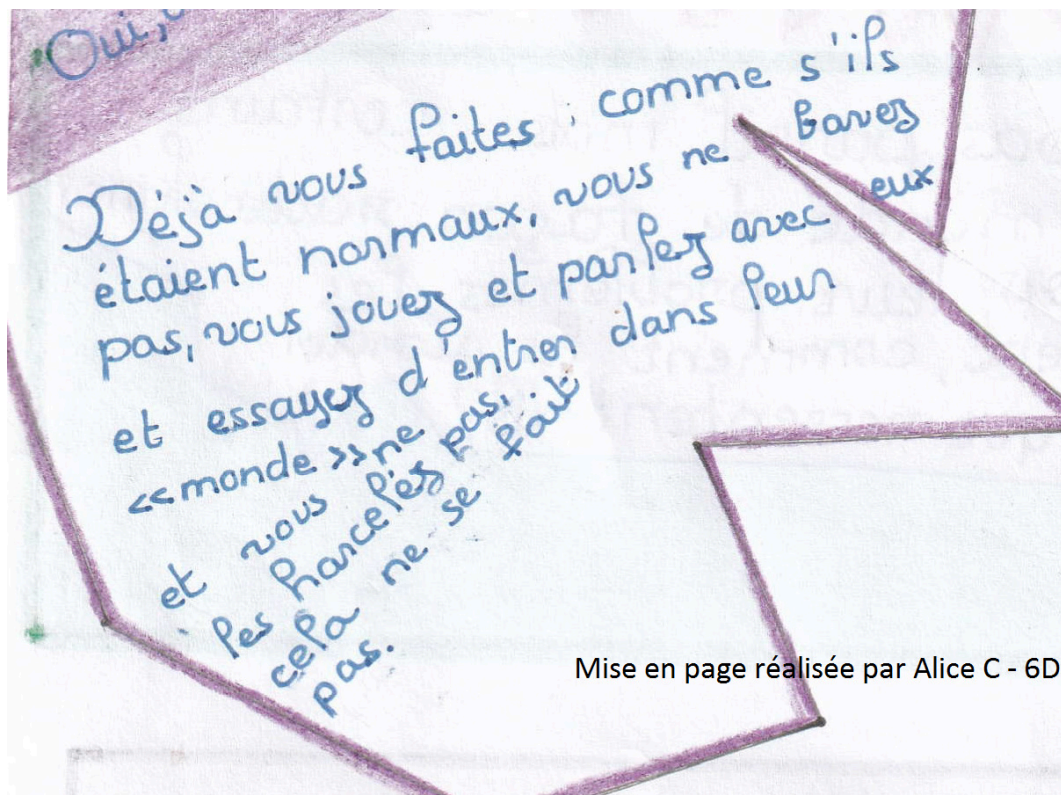 Oui,
Déjà vous faites, comme s'ils
étaient normaux, vous ne bavez
pas, vous jouez et parlez avec eux
et essayez d'entrer dans leur
<<monde>> ne pas,
et vous
les harcelez pas,
cela ne se fait
pas.
Mise en page réalisée par Alice C - 6D